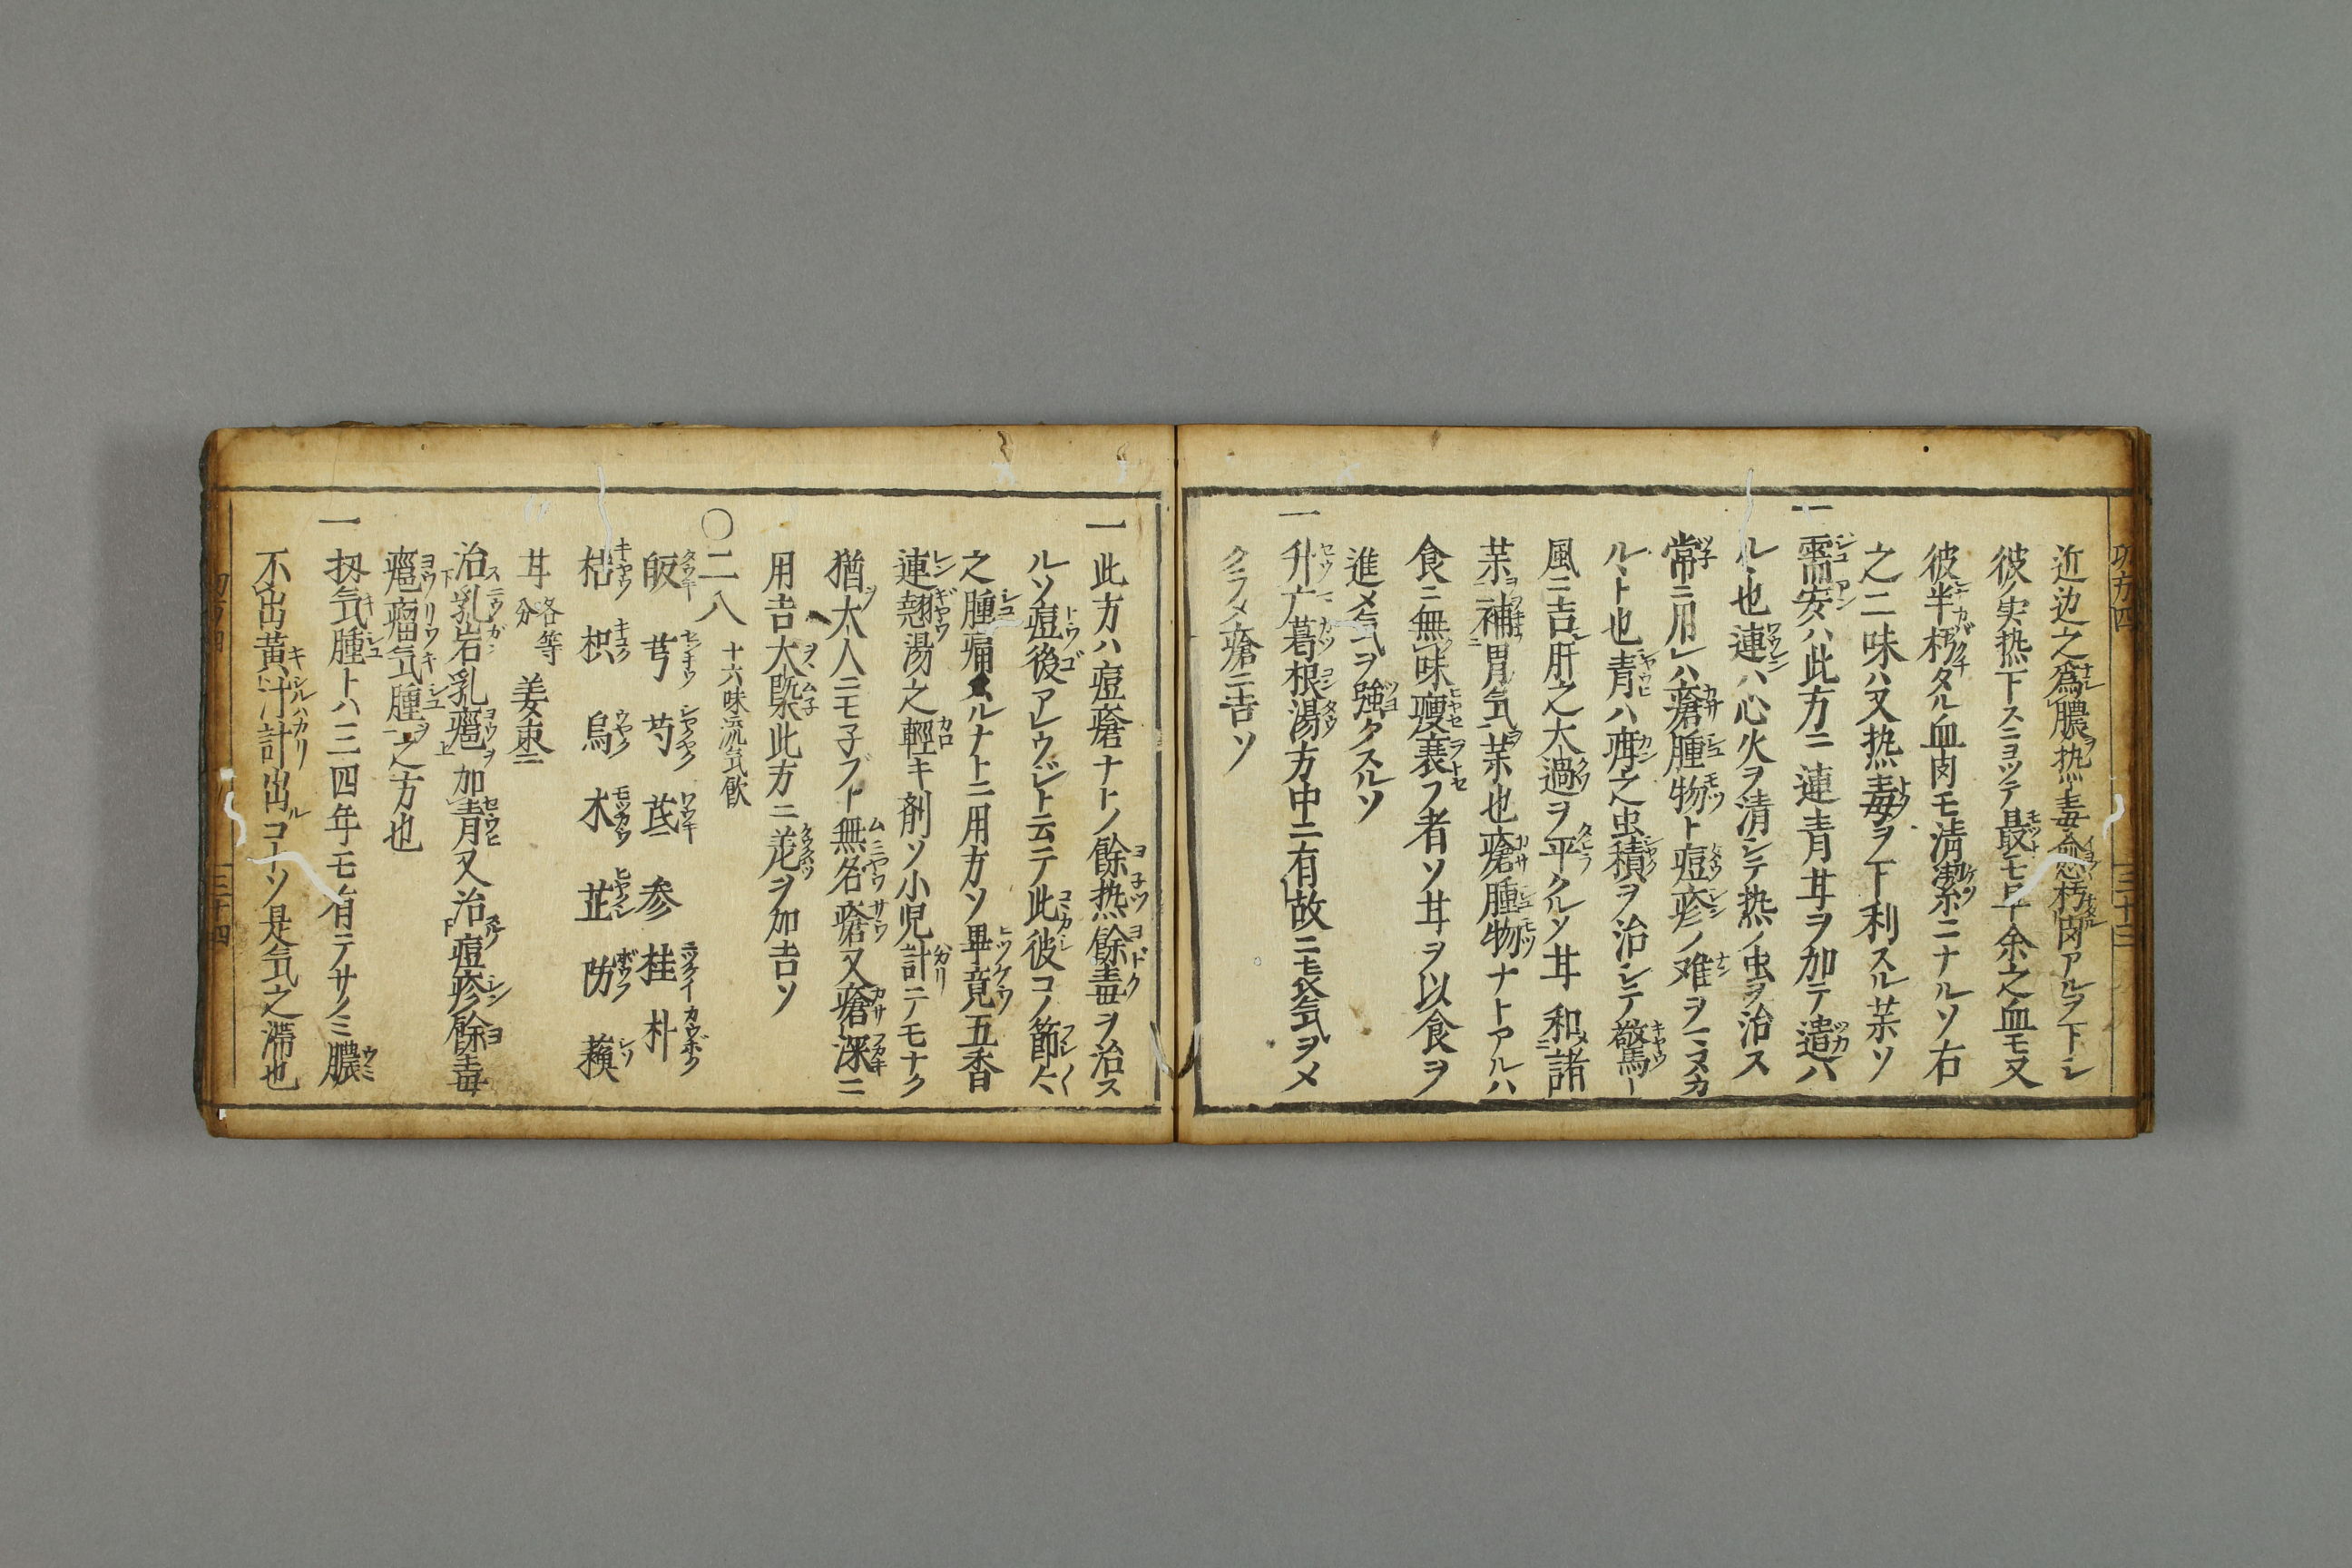 近辺之為膿热毒愈悪朽肉アルヲ下シ
彼ノ実热下スニヨツテ最モ早余之血モ又
彼半朽タル血肉モ清潔ニナルソ右
之二味ハ又热毒ヲ下利スル茶ソ
一 需安ハ此方ニ連青甘ヲ加テ遣ハ
ル丶也連ハ心火ヲ清シテ热ノ虫ヲ治ス
常ニ用ハ瘡腫物ト痘疹ノ难ヲマヌカ
ル丶ト也青ハ疳之虫積ヲ治シテ驚ー
風ニ吉シ肝之大過ヲ平クルソ甘和諸
茶補胃気茶也瘡腫物ナトアルハ
食ニ無味痩衰フ者ソ甘ヲ以食ヲ
進メ気ヲ強クスルソ
一 升广葛根湯方中ニ有故ニ表気ヲメ
クラメ瘡ニ吉ソ
一 此方ハ痘瘡ナトノ餘热餘毒ヲ治ス
ルソ痘後アレウジト云テ此彼コノ節々
之腫痛スルナトニ用方ソ畢竟五香
連翹湯之輕キ剤ソ小児計ニテモナク
猶大人ニモ子ブト無名瘡又瘡深ニ
用吉大槩此方ニ茫ヲ加吉ソ
〇二八 十六味流気飲
皈 芎 芍 茋 参 桂 朴
桔 枳 烏 木 芷 防 蘓
甘 各等分 姜枣二
治乳岩乳癰加青又治痘疹餘毒
癰瘤気腫之方也
一 扨気腫トハ三四年モ有テサノミ膿
不出黄汁計出ルコーソ是気之滞也
三十四